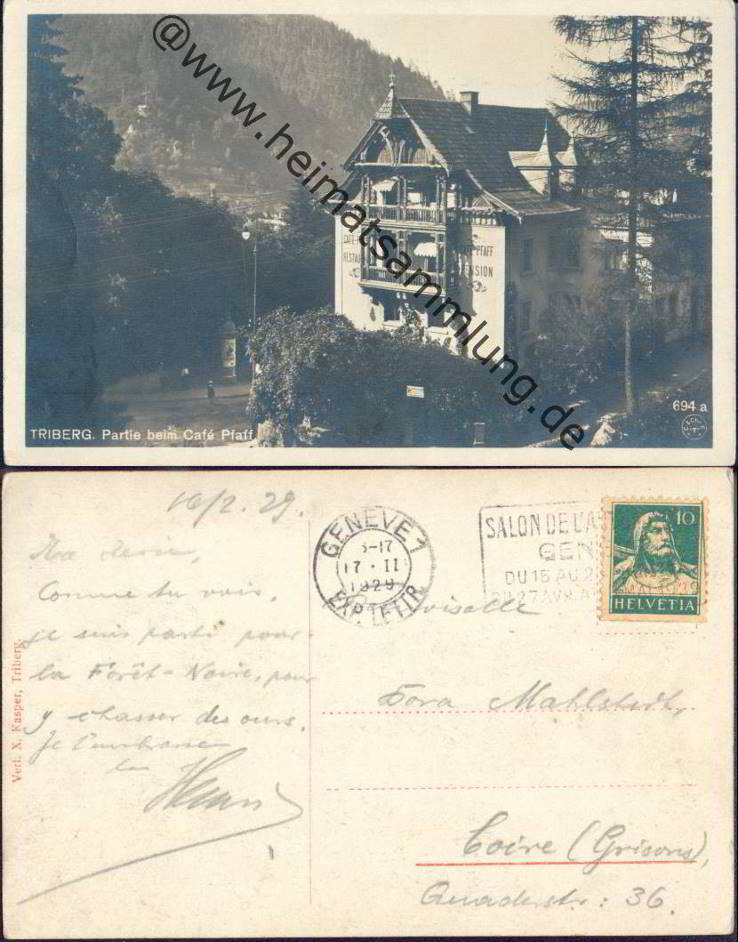 @www.heimatsammlung.de
CAFE
RESTAU
CAFE PFAFF
PENSION
TRIBERG. Partie beim Café Pfaff
694 a
16/2. 29.
GENÈVE 1
-17
17.II
1929
EXP. LETTR.
SALON DE L'A
GEN
DU 15 AU 2
DU 27 AVR. A
10
HELVETIA
Ma
Comme tu vois,
je suis parti pour
la Forêt-Noire, pour
y chasser des ours.
Je t'embrasse
Henri
Verl. X. Kasper, Triberg.
Mahlstedt,
Coire (Grisons),
Quaderstr: 36.